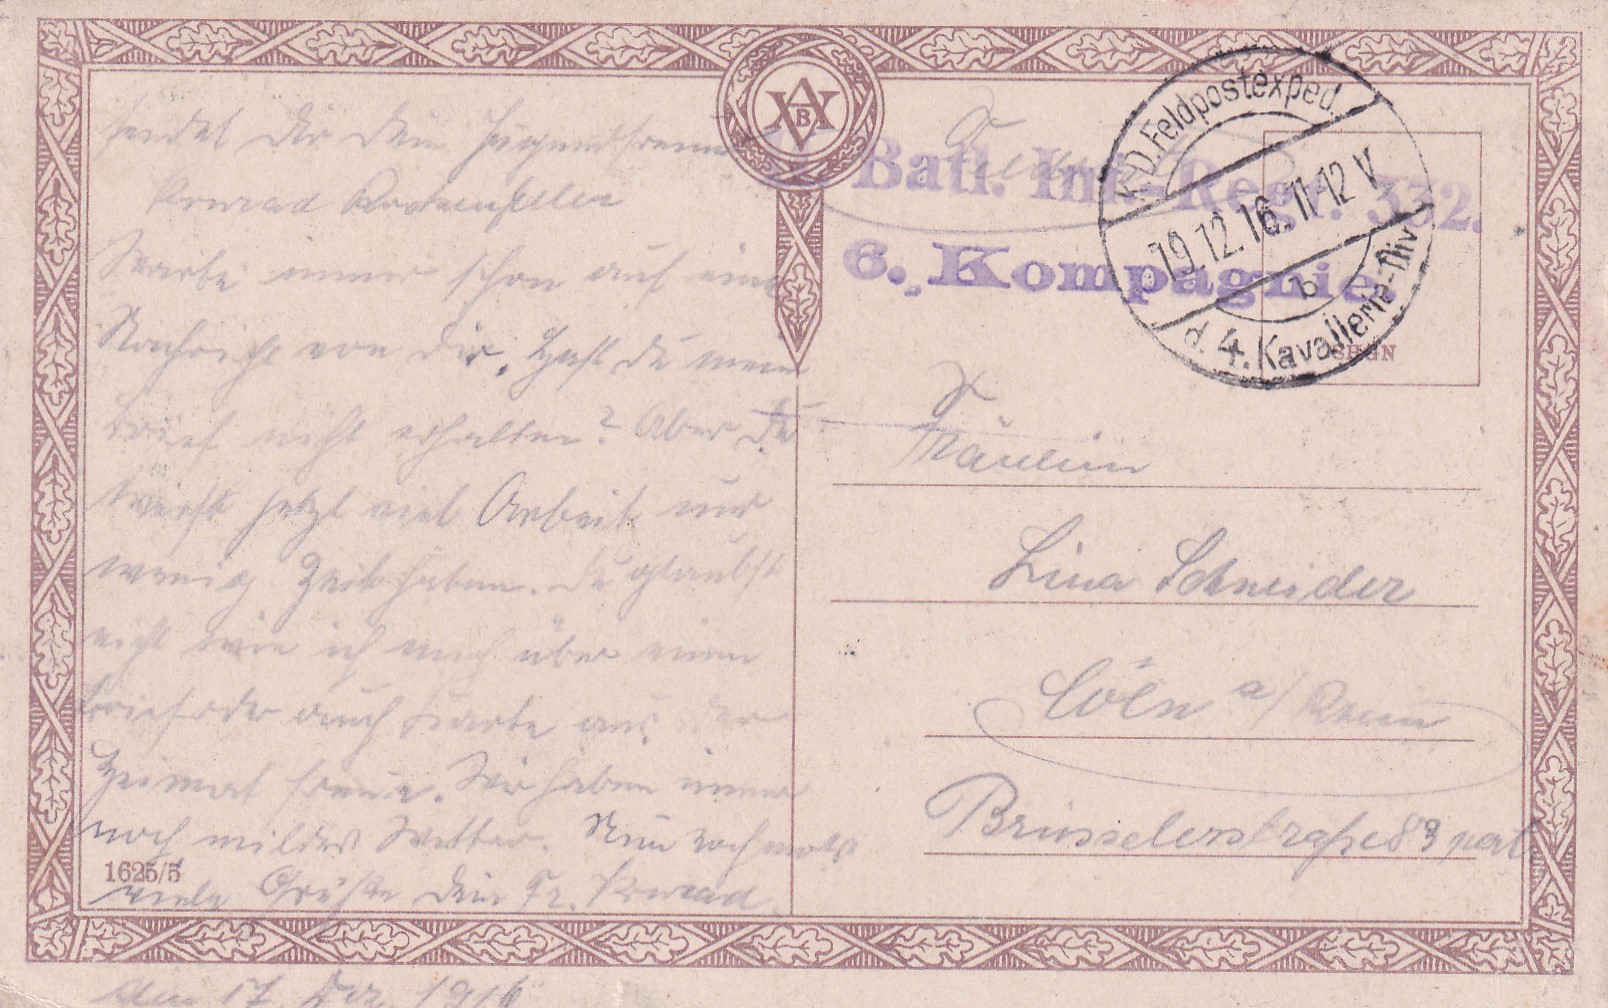 sendet dir dein Jugendfreund
Konrad
Warte immer schon auf eine
Nachricht von Dir. Hast du mein
Brief nicht erhalten? Aber du
wirst jetzt viel Arbeit und
wenig Zeit haben. Du glaubst
nicht wie ich mich über einen
Brief oder auch Karte aus der
Heimat freue. Wir haben immer
noch mildes Wetter. Nun nochmals
viele Grüße dein Fr. Konrad
den 17. Dez. 1916
1625/5
AVB
Batl. Inf.-Regt. 332.
6. Kompagnie.
K.D. Feldpostexped.
19.12.16. 11-12 V
b
d. 4. Kavallerie-Div.
Fräulein
Lina Schneider
Cöln a/Rhein
Brüsselerstraße 83 part.